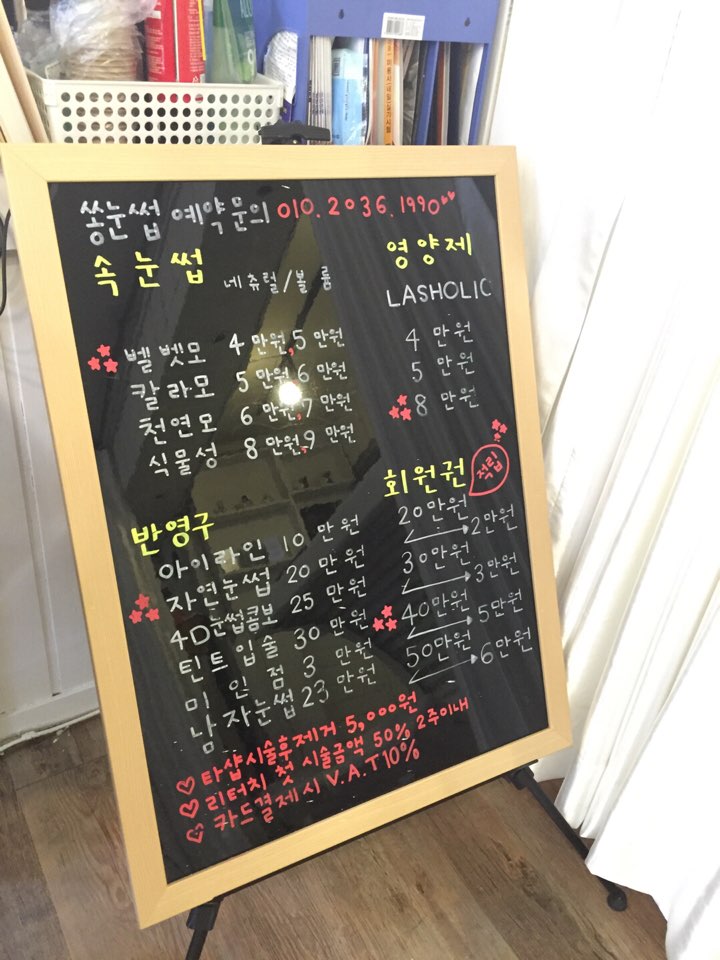 쏭눈썹 예약문의 010.2036.1990
속눈썹 네츄럴/볼륨
벨벳모 4만원,5만원
칼라모 5만원,6만원
천연모 6만원,7만원
식물성 8만원,9만원
영양제
LASHOLIC
4만원
5만원
8만원
반영구
아이라인 10만원
자연눈썹 20만원
4D눈썹콤보 25만원
틴트입술 30만원
미인점 3만원
남자눈썹 23만원
회원권 적립
20만원 2만원
30만원 3만원
40만원 5만원
50만원 6만원
타샵시술후제거 5,000원
리터치 첫 시술금액 50% 2주이내
카드결제시 V.A.T 10%